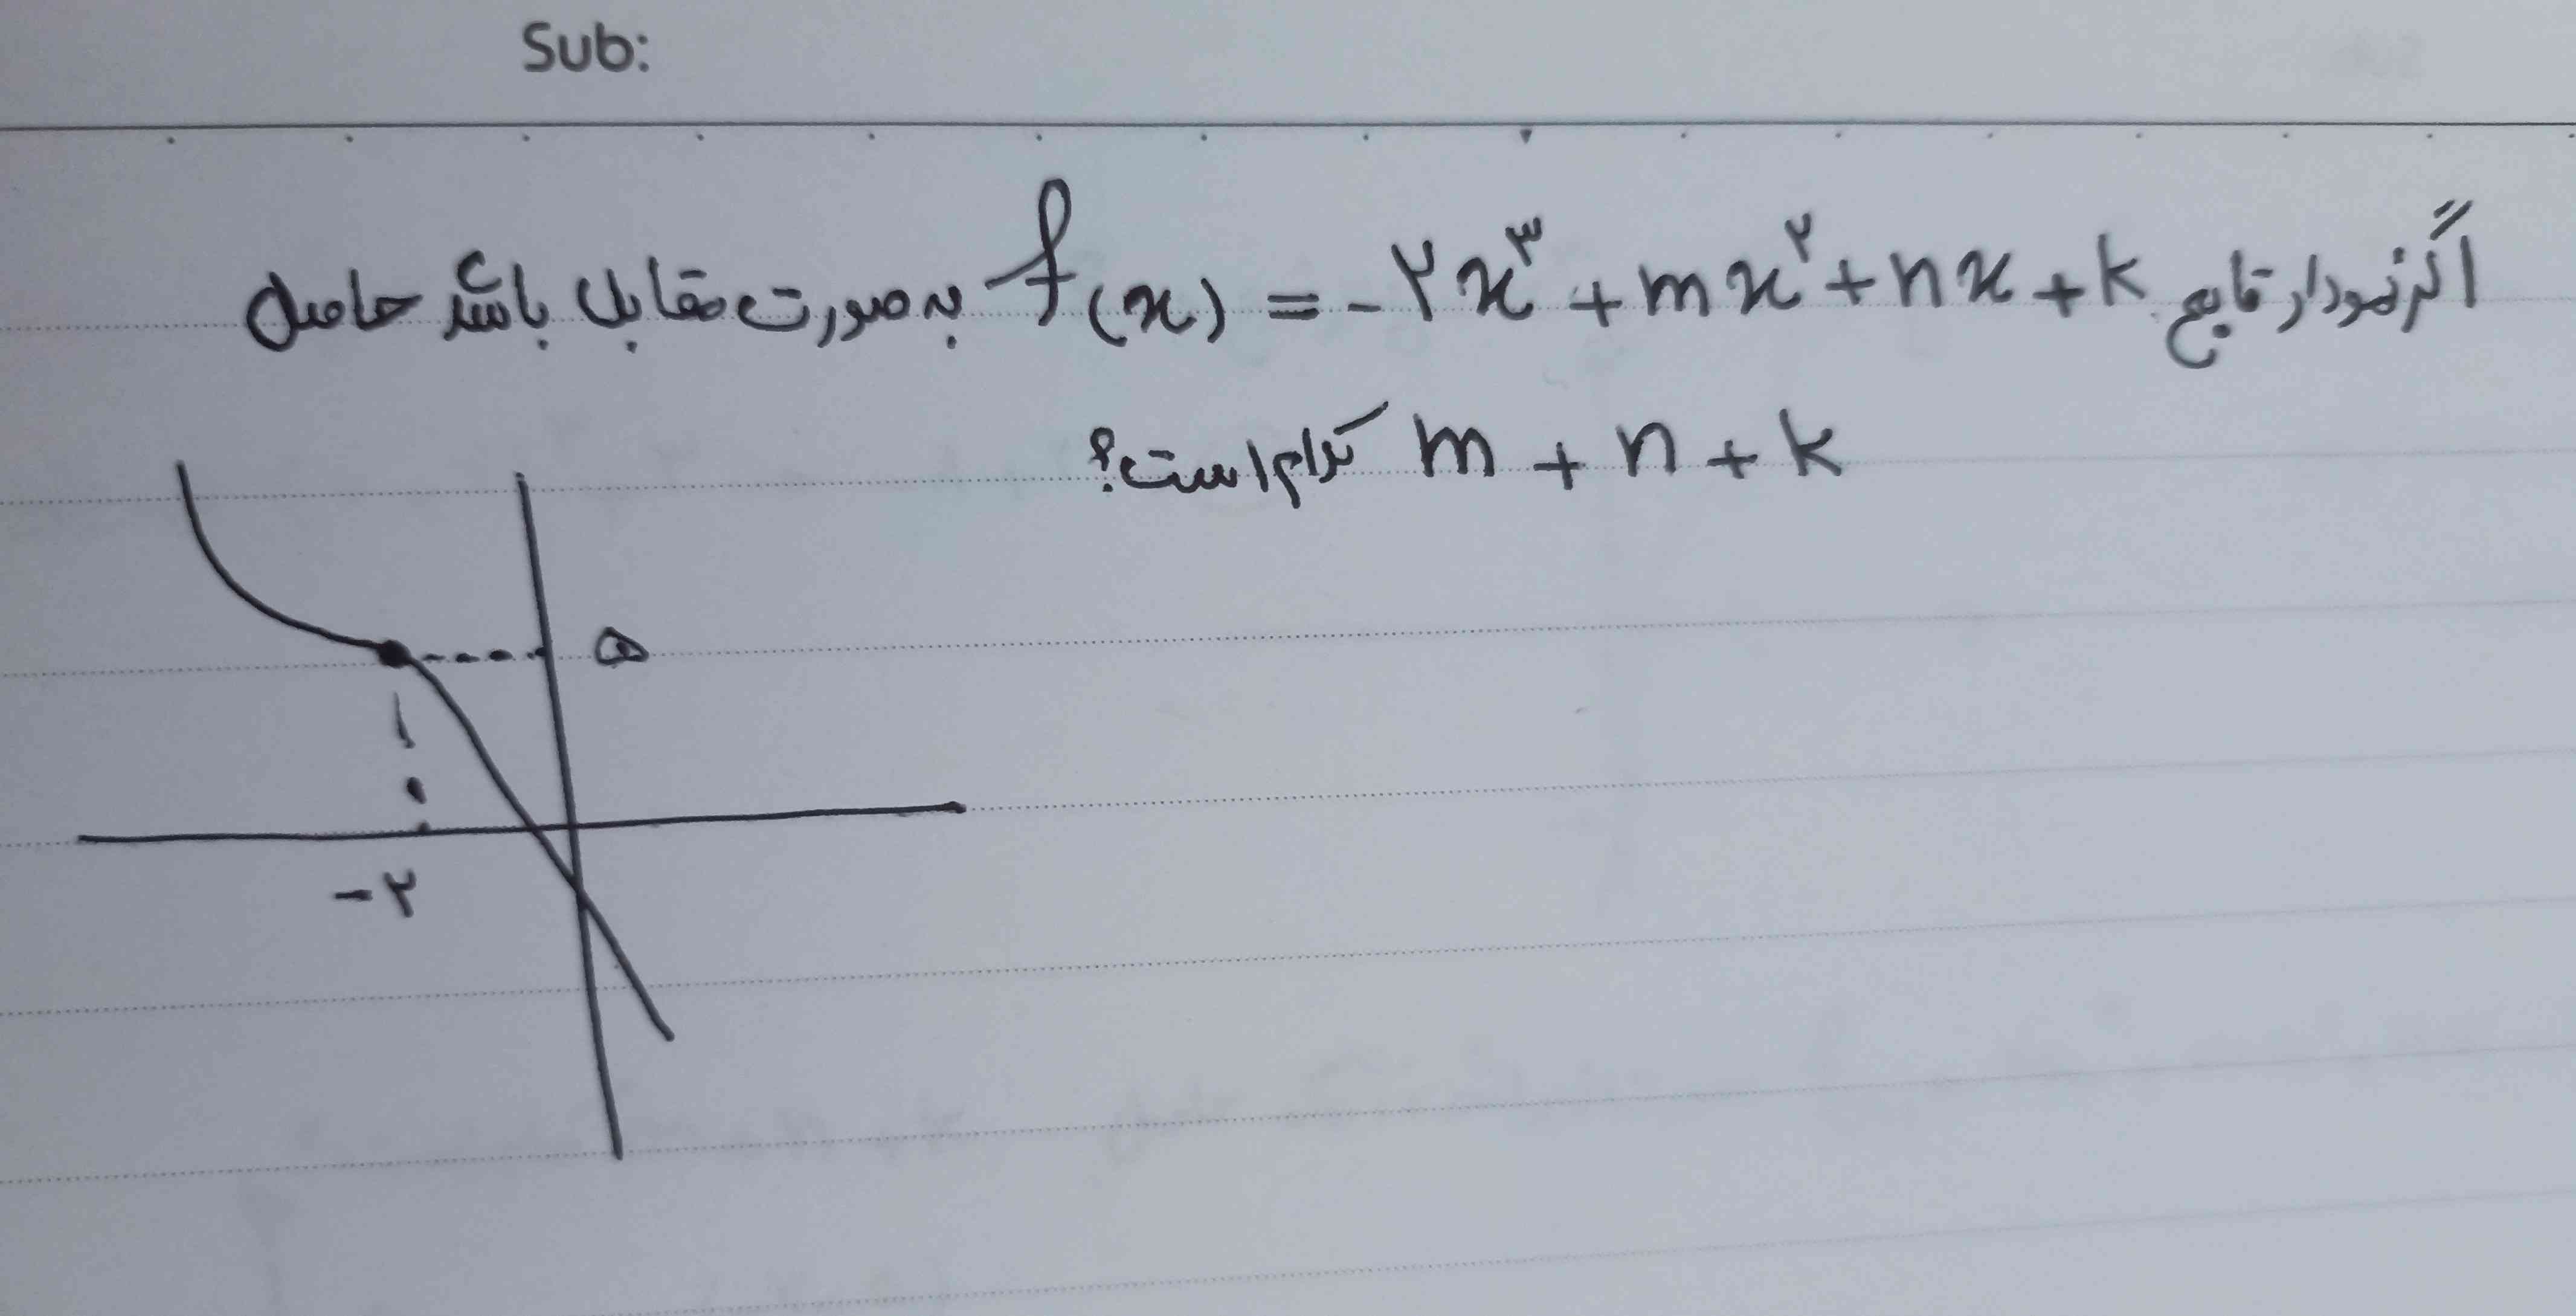 Sub:
اگر نمودار تابع f(x) = -۲x^۳ + mx^۲ + nx + k به صورت مقابل باشد حاصل
m + n + k کدام است؟
۵
-۲